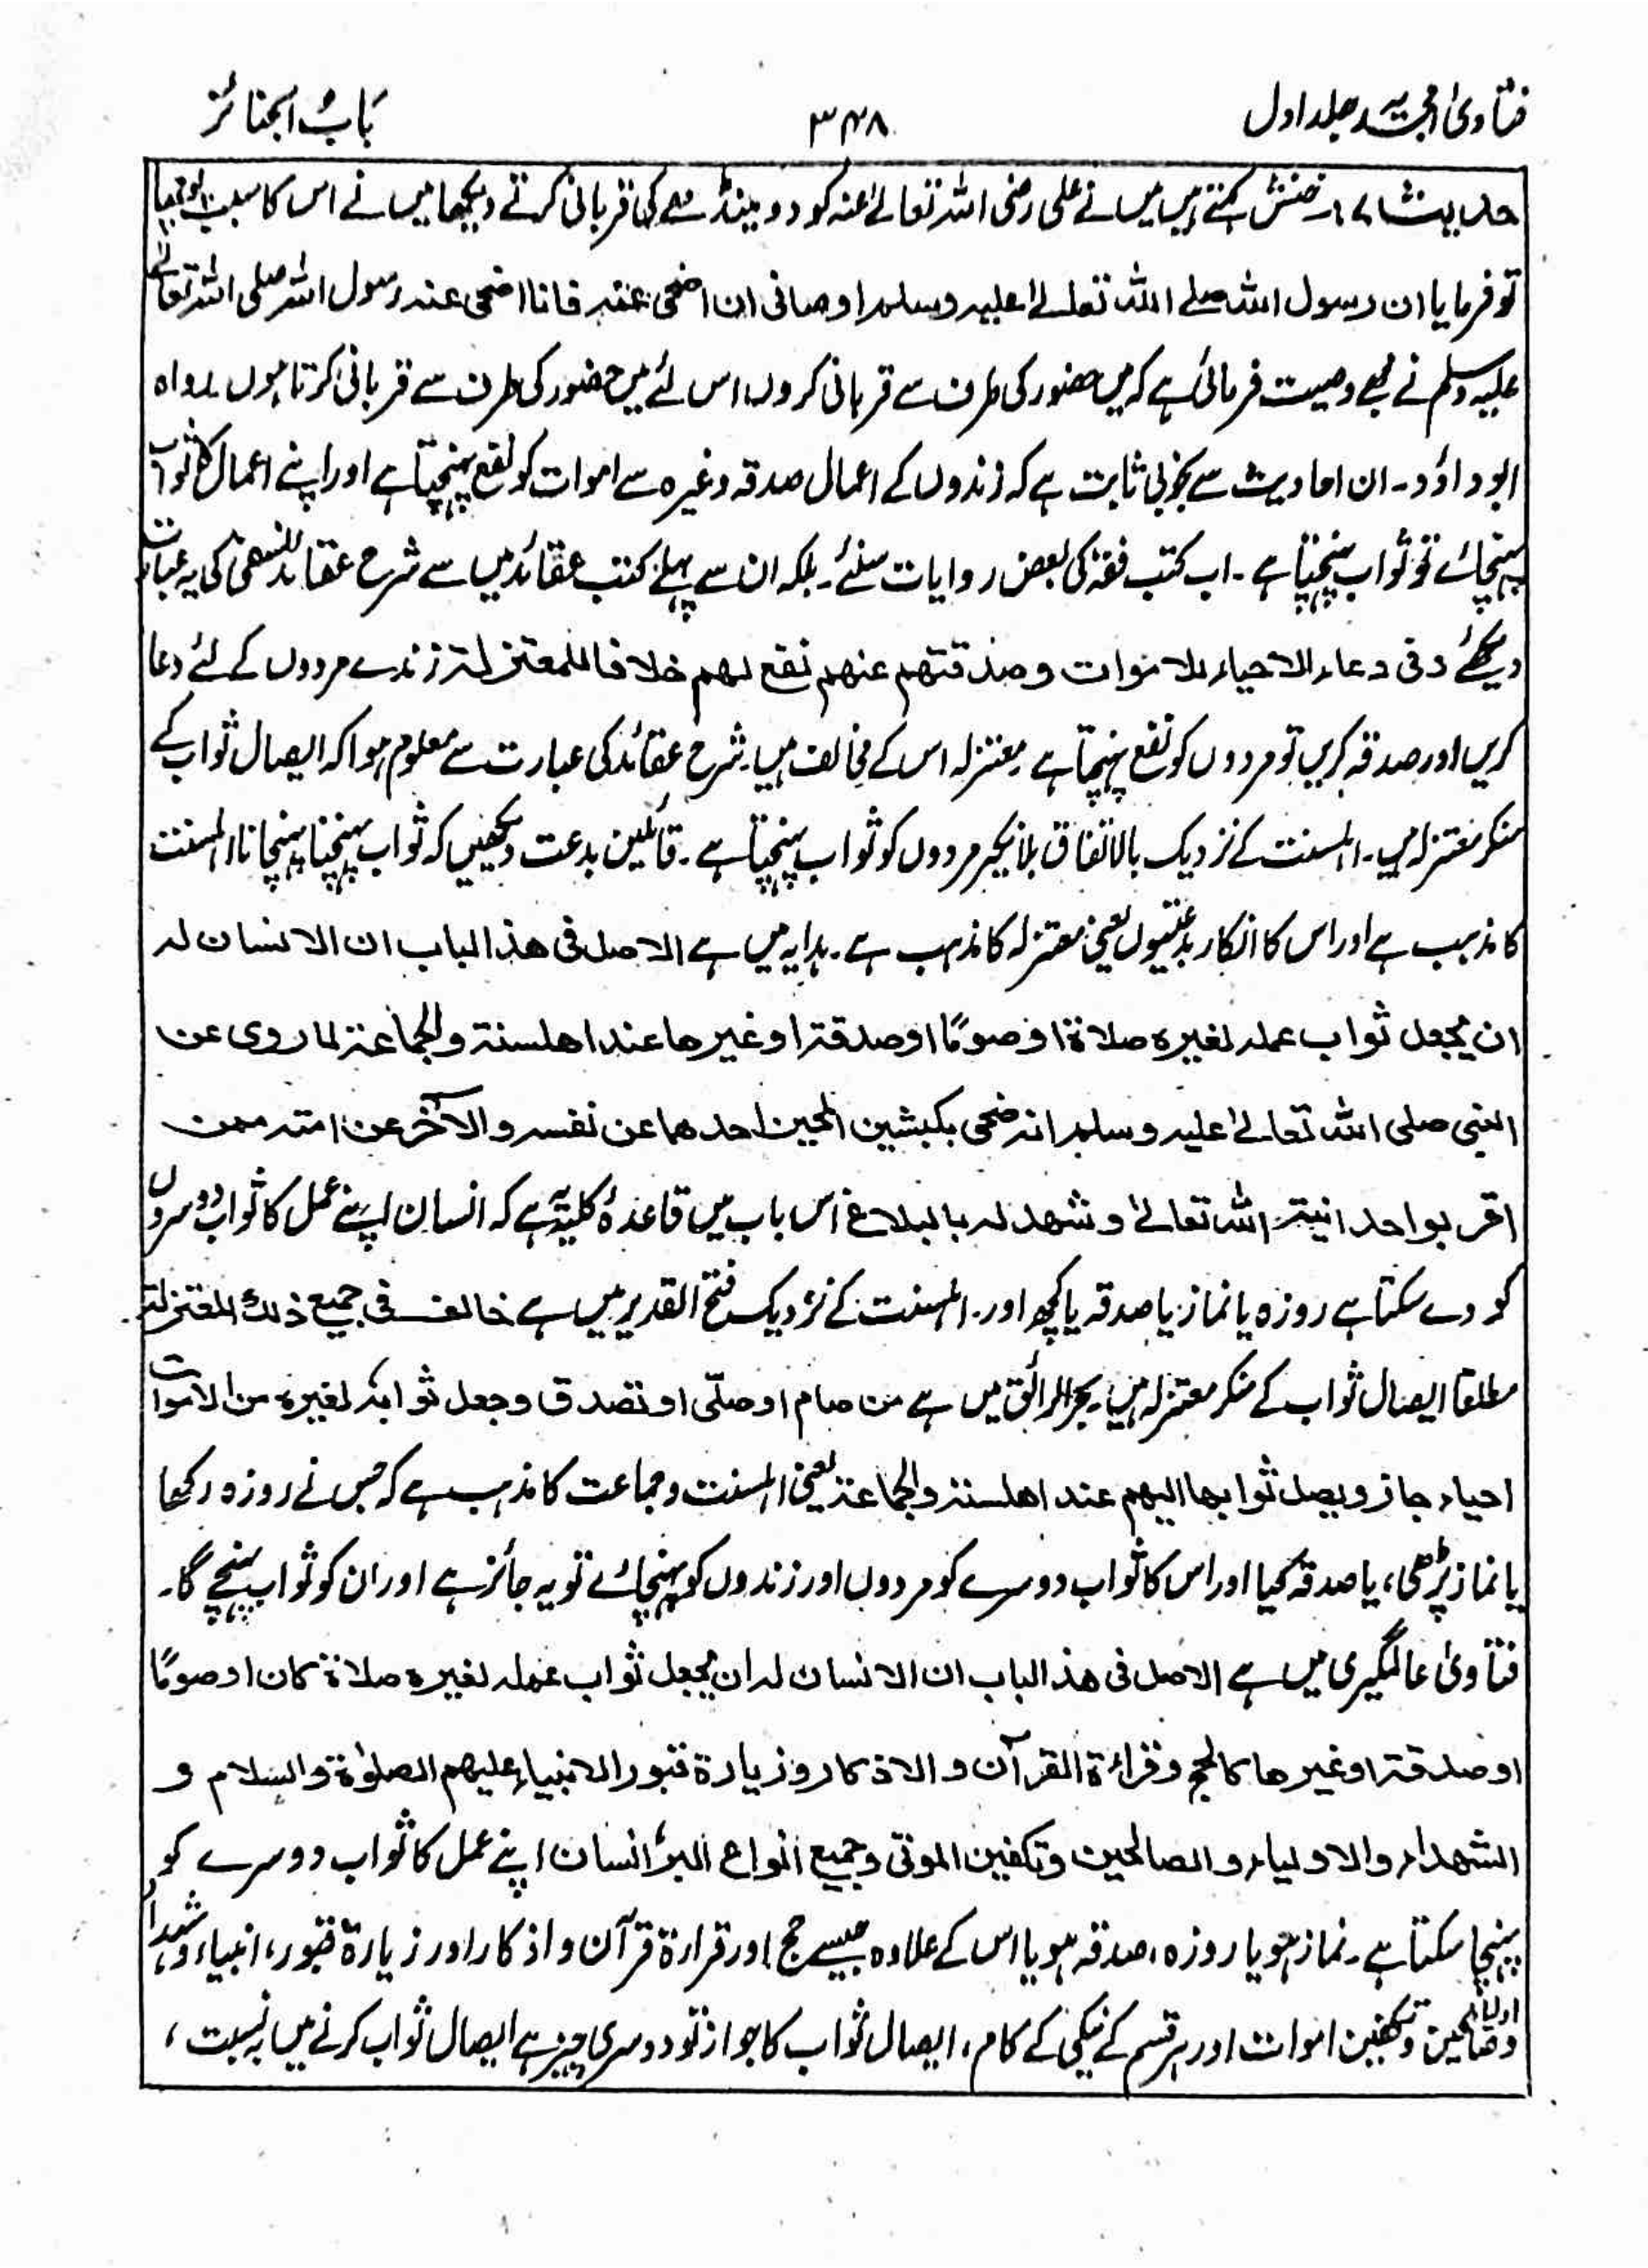 فتاویٰ امجدیہ جلد اول
۳۴۸
باب الجنائز
حدیث ۱۷؎ حنش کہتے ہیں میں نے علی رضی اللہ تعالےٰ عنہ کو دو مینڈھے کی قربانی کرتے دیکھا میں نے اس کا سبب پوچھا
تو فرمایا ان رسول اللہ صلے اللہ تعالےٰ علیہ وسلم اوصانی ان اضحی عنہ فانا اضحی عنہ رسول اللہ صلی اللہ تعالےٰ
علیہ وسلم نے مجھے وصیت فرمائی ہے کہ میں حضور کی طرف سے قربانی کروں اس لئے میں حضور کی طرف سے قربانی کرتا ہوں رواہ
ابو داؤد۔ ان احادیث سے بخوبی ثابت ہے کہ زندوں کے اعمال صدقہ وغیرہ سے اموات کو نفع پہنچتا ہے اور اپنے اعمال کا ثواب
پہنچائے تو ثواب پہنچتا ہے۔ اب کتب فقہ کی بعض روایات سنئے۔ بلکہ ان سے پہلے کتب عقائد میں سے شرح عقائد للنسفی کی یہ عبارت
دیکھئے وفی دعاء الاحیاء للاموات وصدقتہم عنہم نفع لہم خلافا للمعتزلۃ زندے مردوں کے لئے دعا
کریں اور صدقہ کریں تو مردوں کو نفع پہنچتا ہے معتزلہ اس کے مخالف ہیں۔ شرح عقائد کی عبارت سے معلوم ہوا کہ ایصال ثواب کے
منکر معتزلہ ہیں۔ اہلسنت کے نزدیک بالاتفاق بلانکیر مردوں کو ثواب پہنچتا ہے۔ قائلین بدعت دیکھیں کہ ثواب پہنچنا پہنچانا اہلسنت
کا مذہب ہے اور اس کا انکار بدعتیوں یعنی معتزلہ کا مذہب ہے۔ ہدایہ میں ہے الاصل فی ھذا الباب ان الانسان لہ
ان یجعل ثواب عملہ لغیرہ صلاۃ او صومًا او صدقۃ او غیرھا عند اھلسنۃ والجماعۃ لما روی عن
النبی صلی اللہ تعالےٰ علیہ وسلم انہ ضحی بکبشین املحین احدھما عن نفسہ والآخر عن امتہ ممن
اقر بواحدانیۃ اللہ تعالےٰ وشھد لہ بالبلاغ اس باب میں قاعدۂ کلیہ یہ ہے کہ انسان اپنے عمل کا ثواب دوسروں
کو دے سکتا ہے روزہ یا نماز یا صدقہ یا کچھ اور۔ اہلسنت کے نزدیک فتح القدیر میں ہے خالف فی جمیع ذلک المعتزلۃ
مطلقا ایصال ثواب کے منکر معتزلہ ہیں۔ بحر الرائق میں ہے من صام او صلّی او تصدق وجعل ثوابہ لغیرہ من الاموات
احیاء جاز ویصل ثوابھا الیھم عند اھلسنۃ والجماعۃ یعنی اہلسنت وجماعت کا مذہب ہے کہ جس نے روزہ رکھا
یا نماز پڑھی، یا صدقہ کیا اور اس کا ثواب دوسرے کو مردوں اور زندوں کو پہنچائے تو یہ جائز ہے اور ان کو ثواب پہنچے گا۔
فتاویٰ عالمگیری میں ہے الاصل فی ھذا الباب ان الانسان لہ ان یجعل ثواب عملہ لغیرہ صلاۃ کان او صومًا
او صدقۃ او غیرھا کالحج وقراءۃ القرآن والاذکار وزیارۃ قبور الانبیاء علیھم الصلوٰۃ والسلام و
الشھداء والاولیاء والصالحین وتکفین الموتی وجمیع انواع البر انسان اپنے عمل کا ثواب دوسرے کو
پہنچا سکتا ہے۔ نماز ہو یا روزہ، صدقہ ہو یا اس کے علاوہ جیسے حج اور قراءۃ قرآن و اذکار اور زیارۃ قبور، انبیاء و شہداء،
اولیاء وصالحین وتکفین اموات اور ہر قسم کے نیکی کے کام، ایصال ثواب کا جواز تو دوسری چیز ہے ایصال ثواب کرنے میں بہ نسبت،